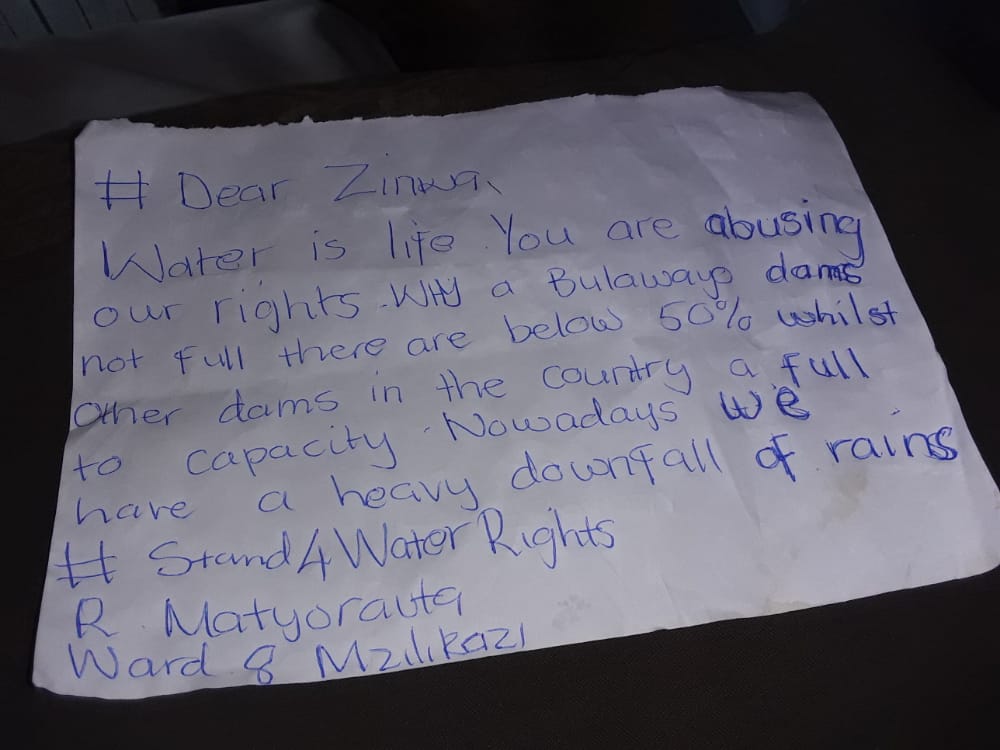 # Dear Zinwa,
Water is life. You are abusing
our rights. Why a Bulawayo dams
not full there are below 50% whilst
other dams in the country a full
to capacity. Nowadays we
have a heavy downfall of rains
# Stand4WaterRights
R Matyorauta
Ward 8 Mzilikazi